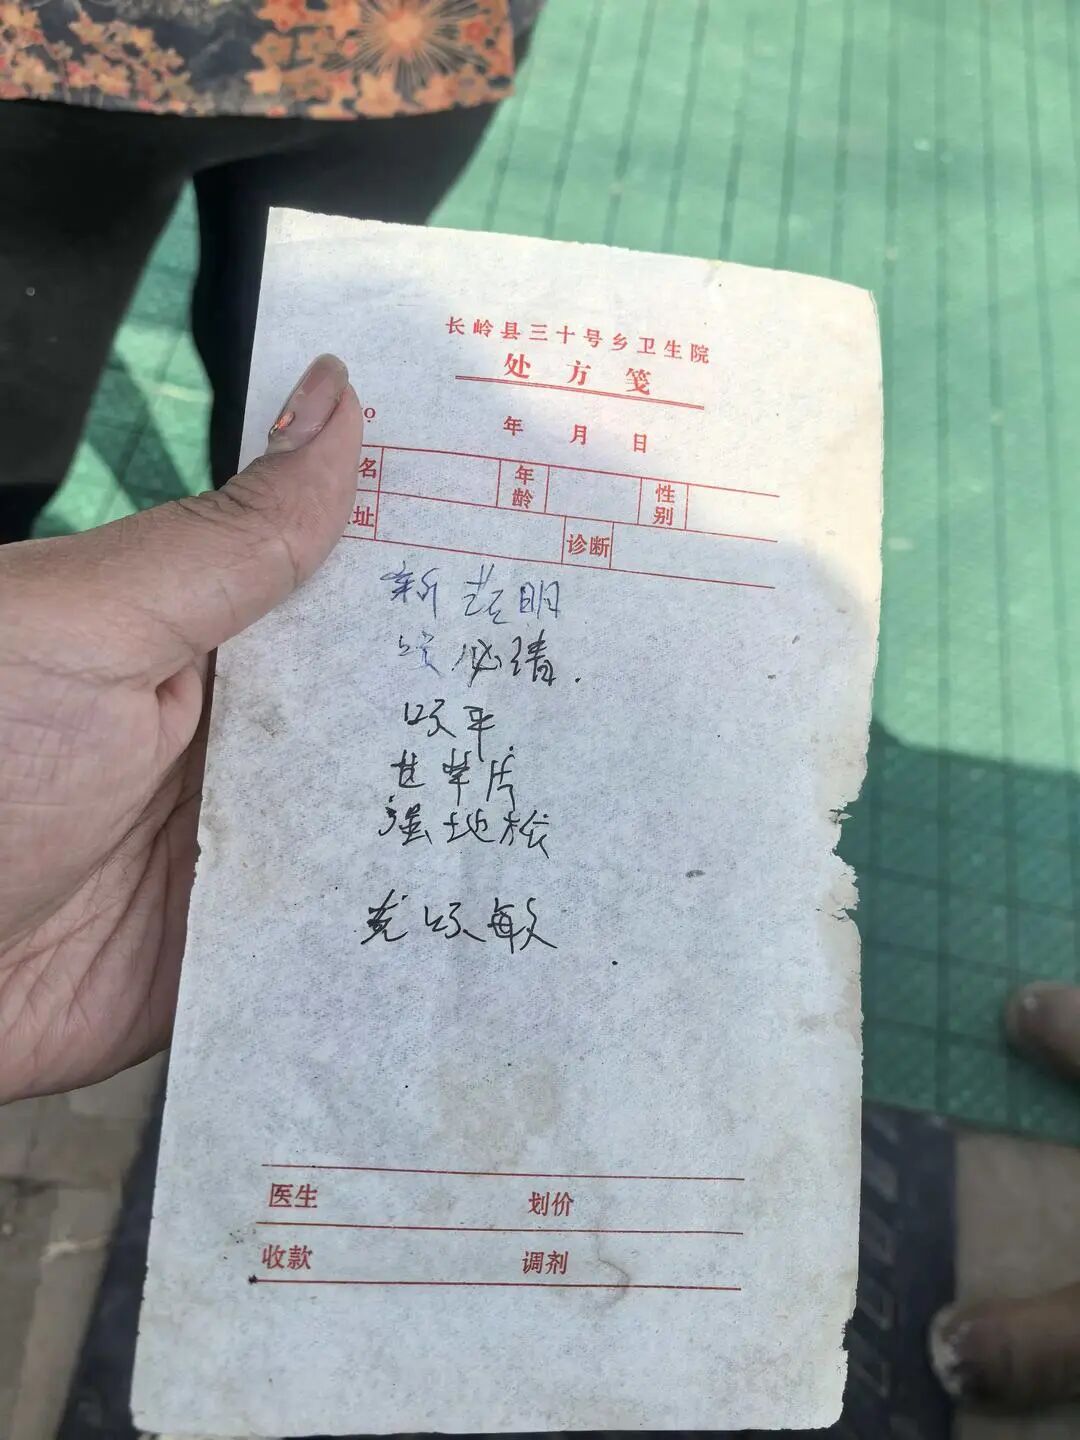 长岭县三十号乡卫生院
处方笺
年 月 日
名 年龄 性别
址 诊断
新 明
必清.
咳平.
甘草片
强地松
克咳敏
医生 划价
收款 调剂